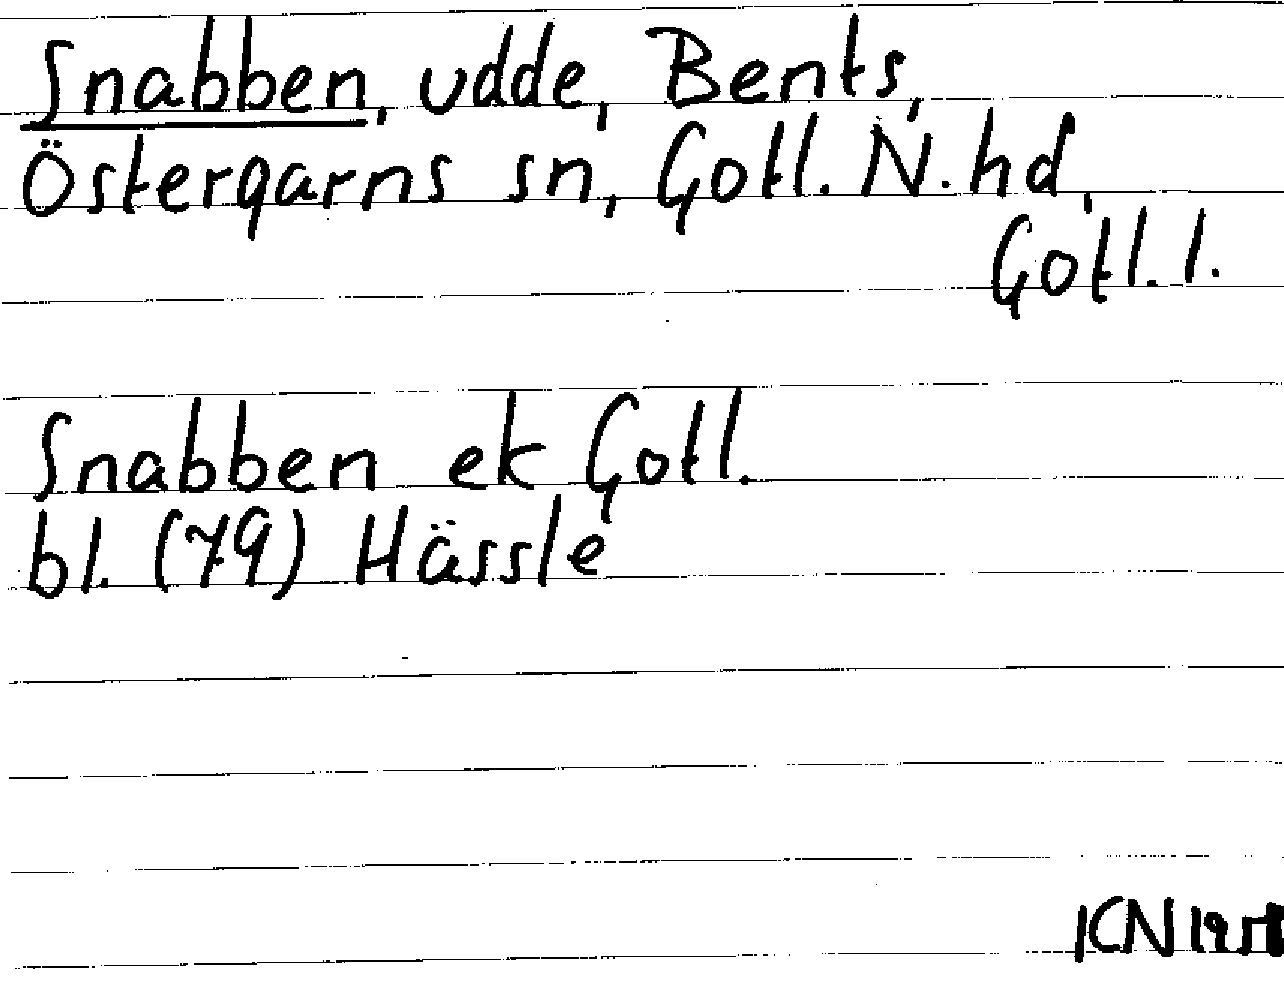 Snabben, udde, Bents,
Östergarns sn, Gotl. N. hd,
Gotl. l.
Snabben ek Gotl.
bl. (79) Hässle
ICN